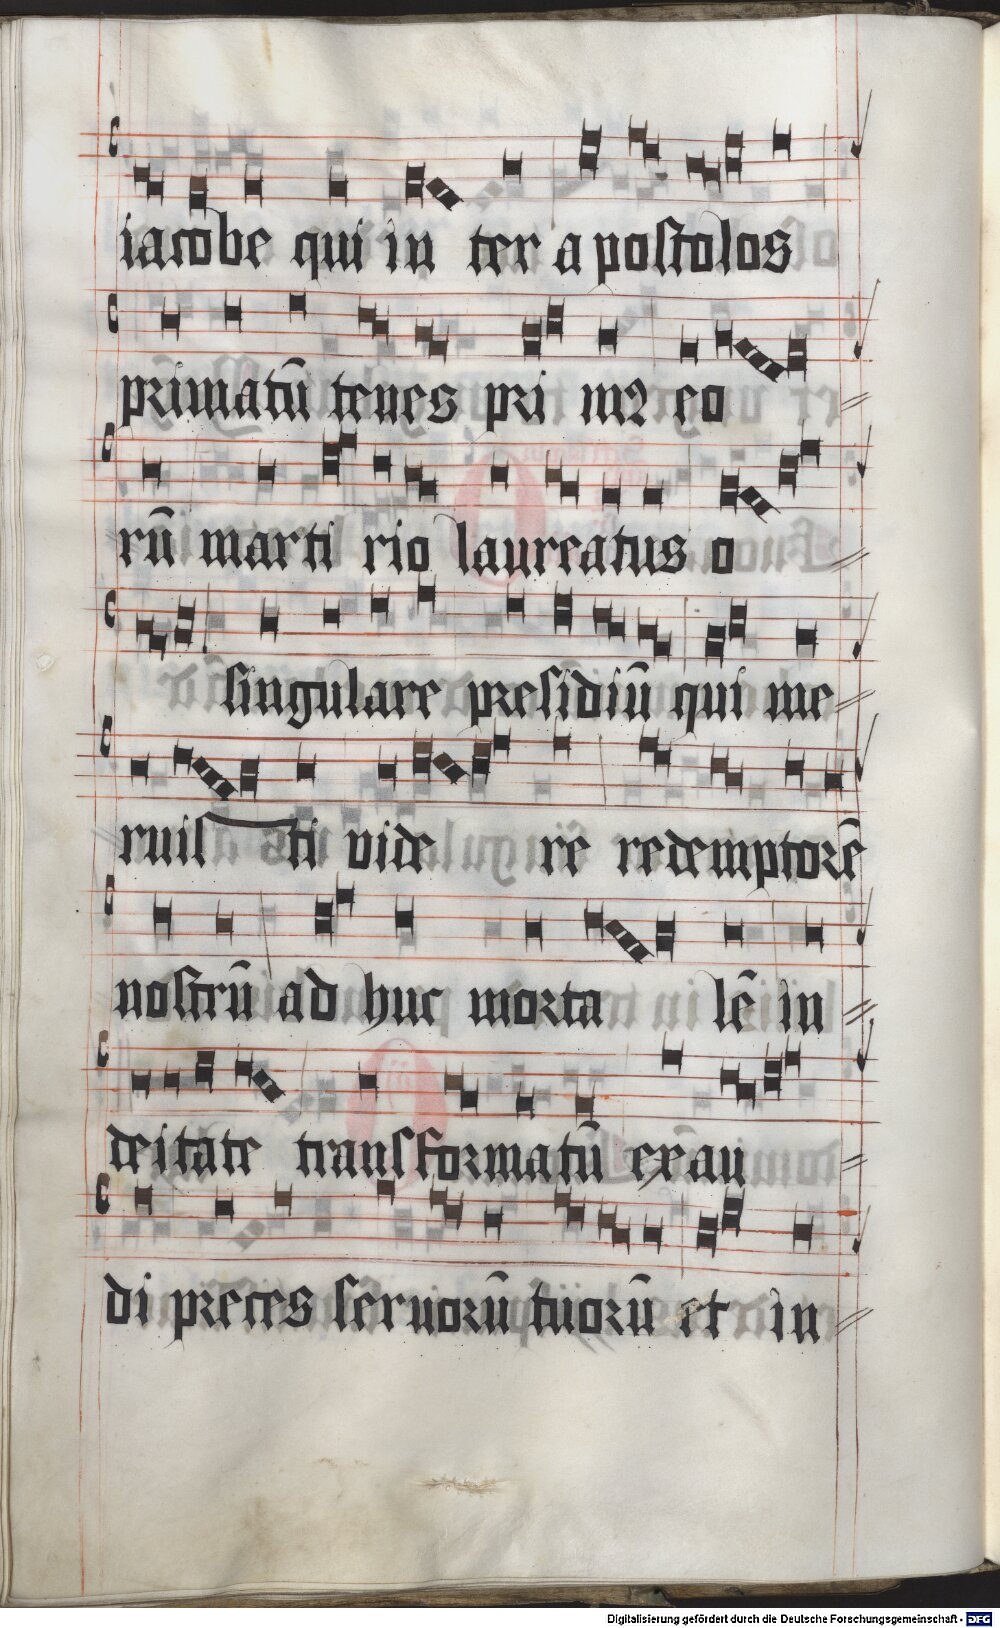 iacobe qui in ter apostolos
primatū tenes pri mꝰ eo
rū marti rio laureatus o
singulare presidiū qui me
ruis ti vide re redemptorē
nostrū ad huc morta lē in
deitate transformatū exau
di preces seruorū tuorū et in
Digitalisierung gefördert durch die Deutsche Forschungsgemeinschaft - DFG